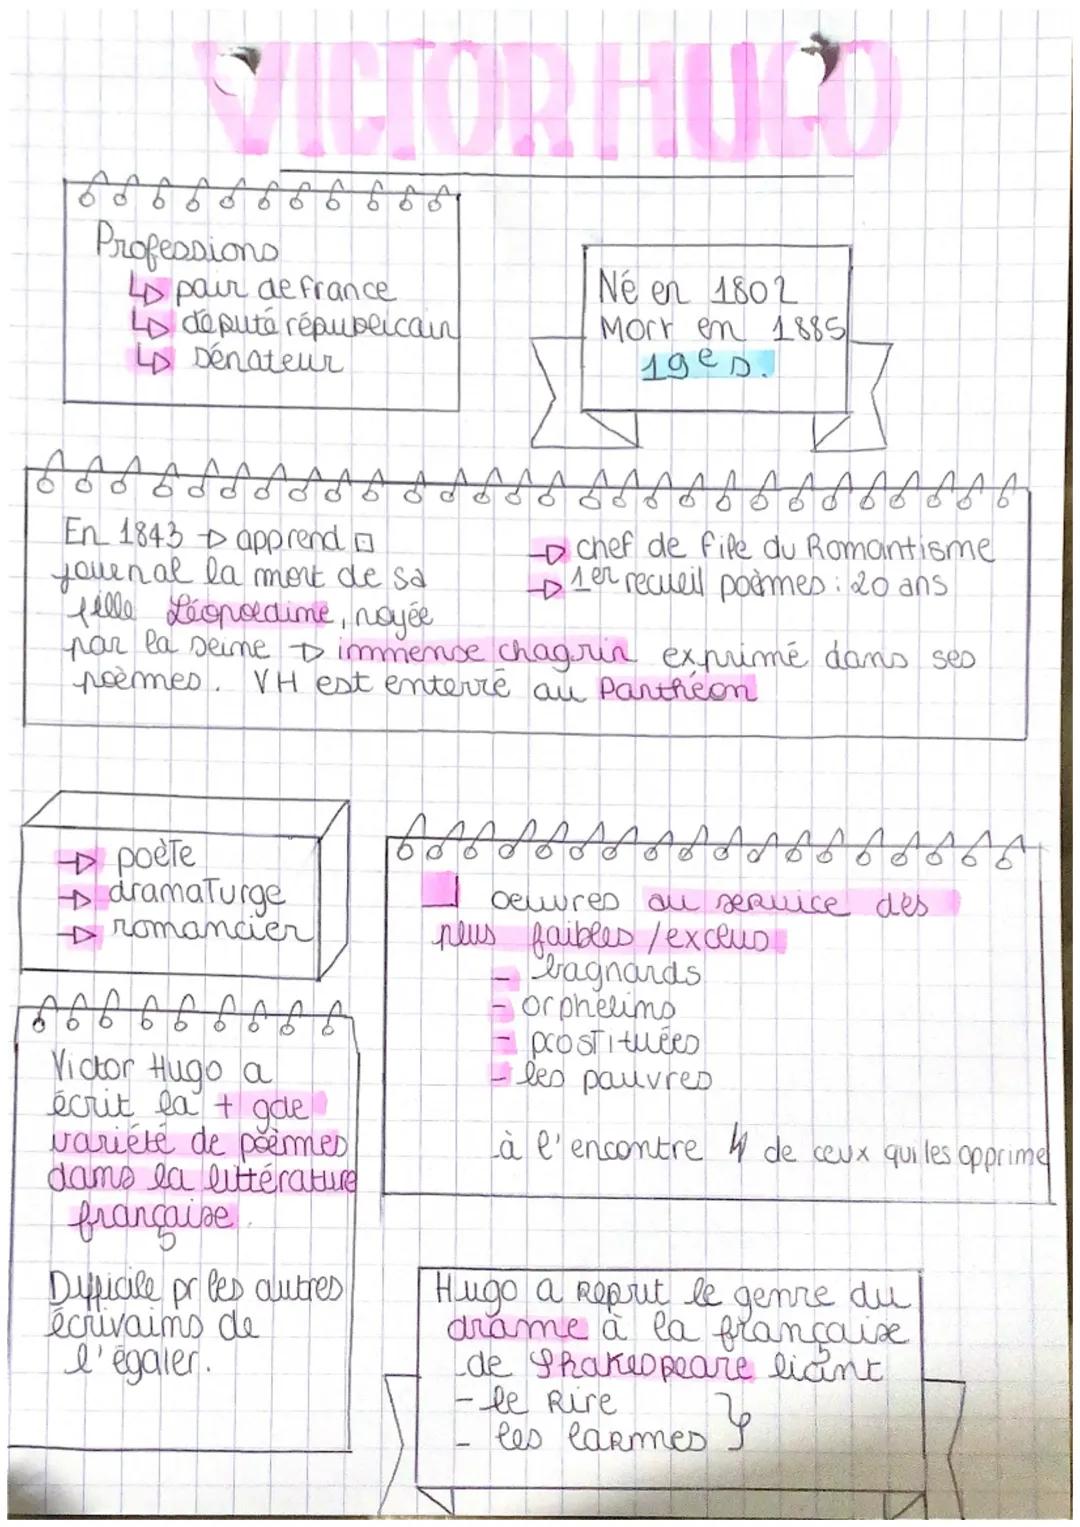 VICTOR HUGO
Professions
↳ pair de france
↳ député républicain
↳ sénateur
Né en 1802
Mort en 1885
19e s.
En 1843 → apprend
journal la mort de sa
fille Léopoldine, noyée
par la seine → immense chagrin exprimé dans ses
poèmes. VH est enterré au Panthéon
→ chef de file du Romantisme
→ 1er recueil poèmes : 20 ans
→ poète
→ dramaturge
→ romancier
oeuvres au service des
plus faibles / exclus
- bagnards
- orphelins
- prostituées
- les pauvres
à l'encontre de ceux qui les opprime
Victor Hugo a
écrit la + gde
variété de poèmes
dans la littérature
française.
Difficile pr les autres
écrivains de
l'égaler.
Hugo a reprit le genre du
drame à la française
de Shakespeare liant
- le Rire
- les larmes